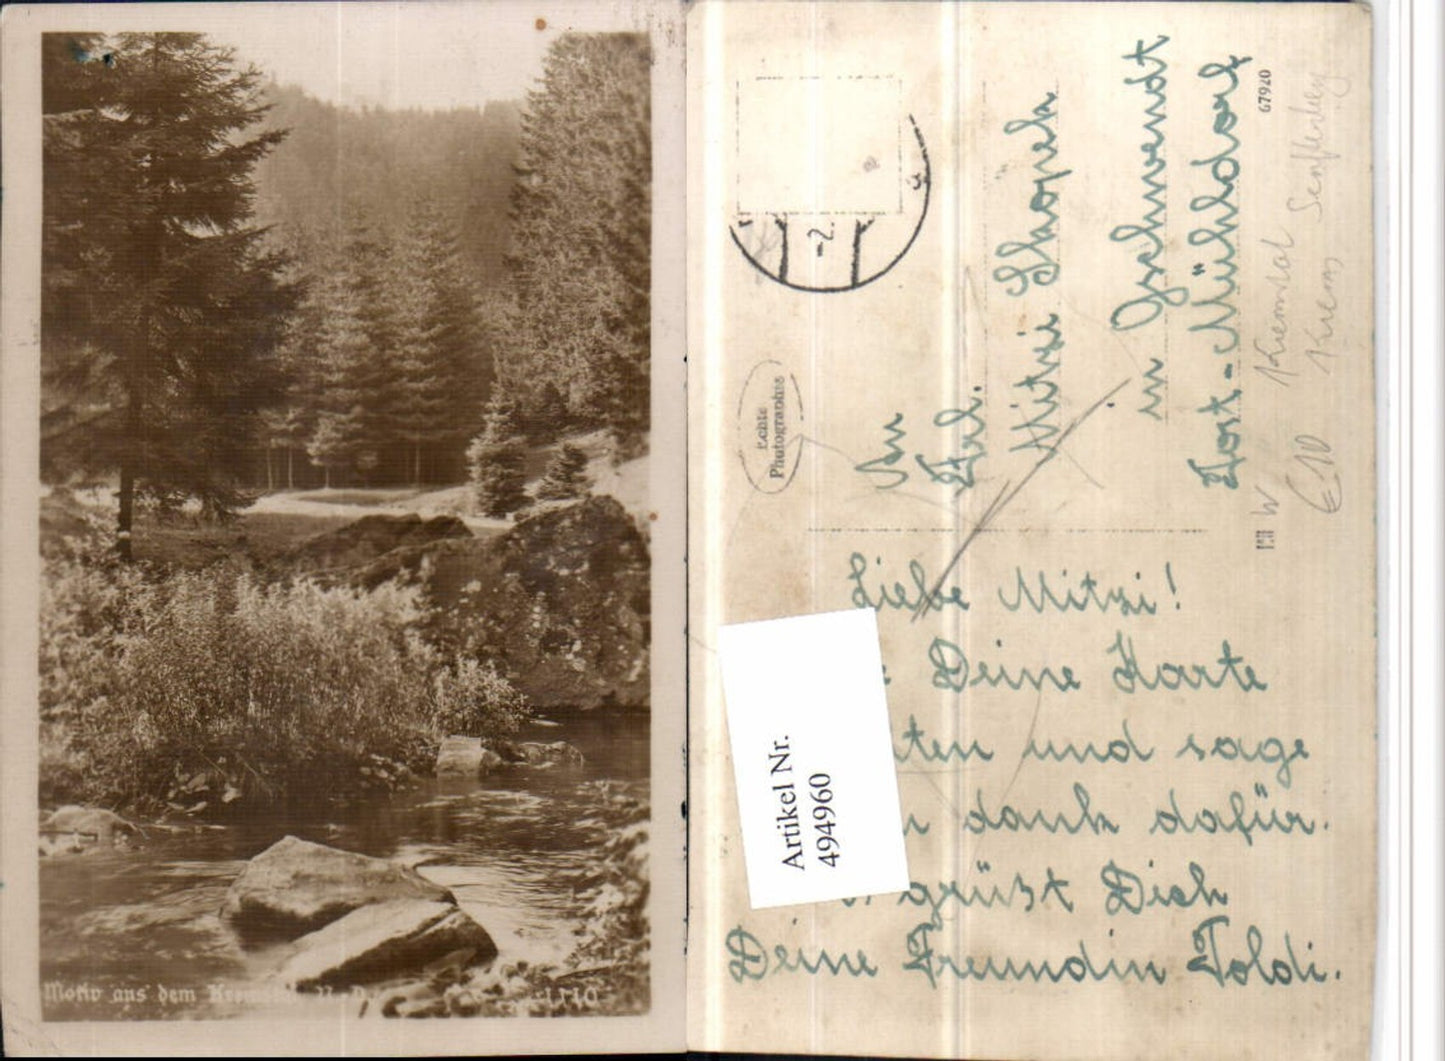 Motiv aus dem
1110
Echte
Photographie
-2.
An
Frl.
Mitzi Skopek
in Gschwendt
Post-Mühldorf
67920
Kremstal
Krems Senftenberg
W
E10
Artikel Nr.
494960
Liebe Mitzi!
Deine Karte
ten und sage
dank dafür.
grüßt Dich
Deine Freundin Poldi.